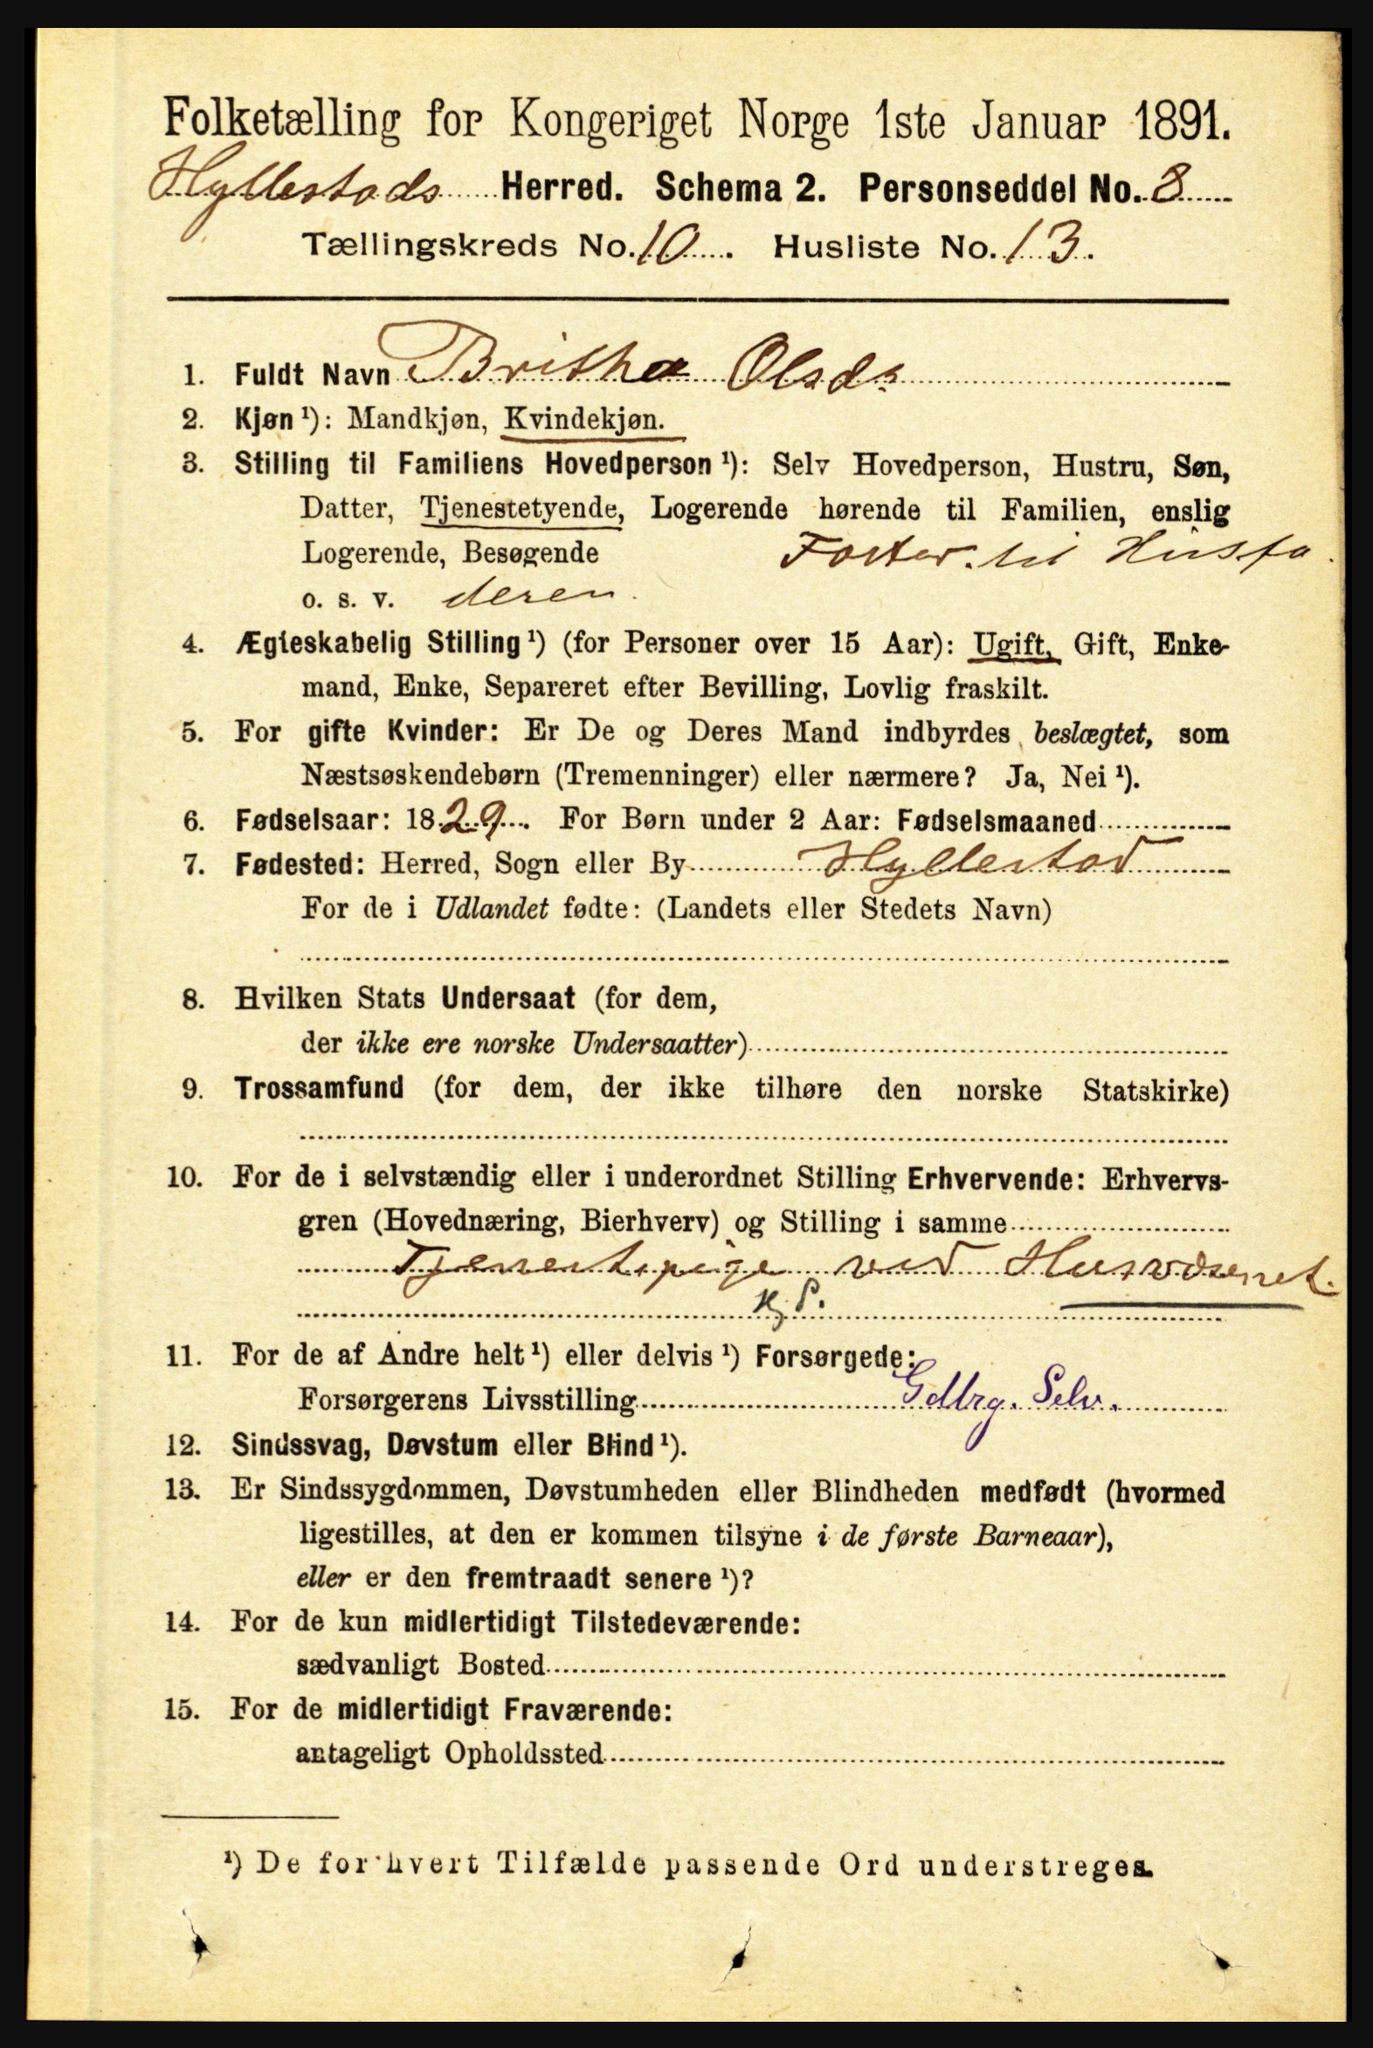 Folketælling for Kongeriget Norge 1ste Januar 1891.
Hyllestads Herred. Schema 2. Personseddel No. 8
Tællingskreds No. 10. Husliste No. 13.
1. Fuldt Navn Britha Olsdr
2. Kjøn ¹): Mandkjøn, Kvindekjøn.
3. Stilling til Familiens Hovedperson ¹): Selv Hovedperson, Hustru, Søn,
Datter, Tjenestetyende, Logerende hørende til Familien, enslig
Logerende, Besøgende til Husfa
o. s. v. deren.
4. Ægteskabelig Stilling ¹) (for Personer over 15 Aar): Ugift, Gift, Enke-
mand, Enke, Separeret efter Bevilling, Lovlig fraskilt.
5. For gifte Kvinder: Er De og Deres Mand indbyrdes beslægtet, som
Næstsøskendebørn (Tremenninger) eller nærmere? Ja, Nei ¹).
6. Fødselsaar: 1829. For Børn under 2 Aar: Fødselsmaaned
7. Fødested: Herred, Sogn eller By Hyllestad
For de i Udlandet fødte: (Landets eller Stedets Navn)
8. Hvilken Stats Undersaat (for dem,
der ikke ere norske Undersaatter)
9. Trossamfund (for dem, der ikke tilhøre den norske Statskirke)
10. For de i selvstændig eller i underordnet Stilling Erhvervende: Erhvervs-
gren (Hovednæring, Bierhverv) og Stilling i samme
Tjenestpige ved Husvæsenet.
11. For de af Andre helt ¹) eller delvis ¹) Forsørgede:
Forsørgerens Livsstilling Gdbrg. Selv.
12. Sindssvag, Døvstum eller Blind ¹).
13. Er Sindssygdommen, Døvstumheden eller Blindheden medfødt (hvormed
ligestilles, at den er kommen tilsyne i de første Barneaar),
eller er den fremtraadt senere ¹)?
14. For de kun midlertidigt Tilstedeværende:
sædvanligt Bosted
15. For de midlertidigt Fraværende:
antageligt Opholdssted
¹) De for hvert Tilfælde passende Ord understreges.